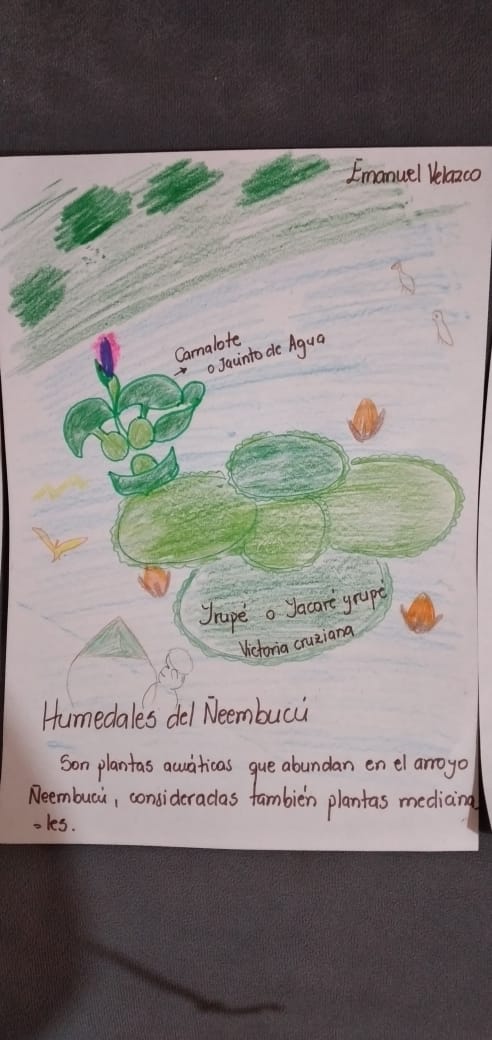 Emanuel Velazco
Camalote
→ o Jacinto de Agua
Yrupé o Yacaré yrupé
Victoria cruziana
Humedales del Ñeembucú
Son plantas acuáticas que abundan en el arroyo
Ñeembucú, consideradas también plantas medicina
-les.